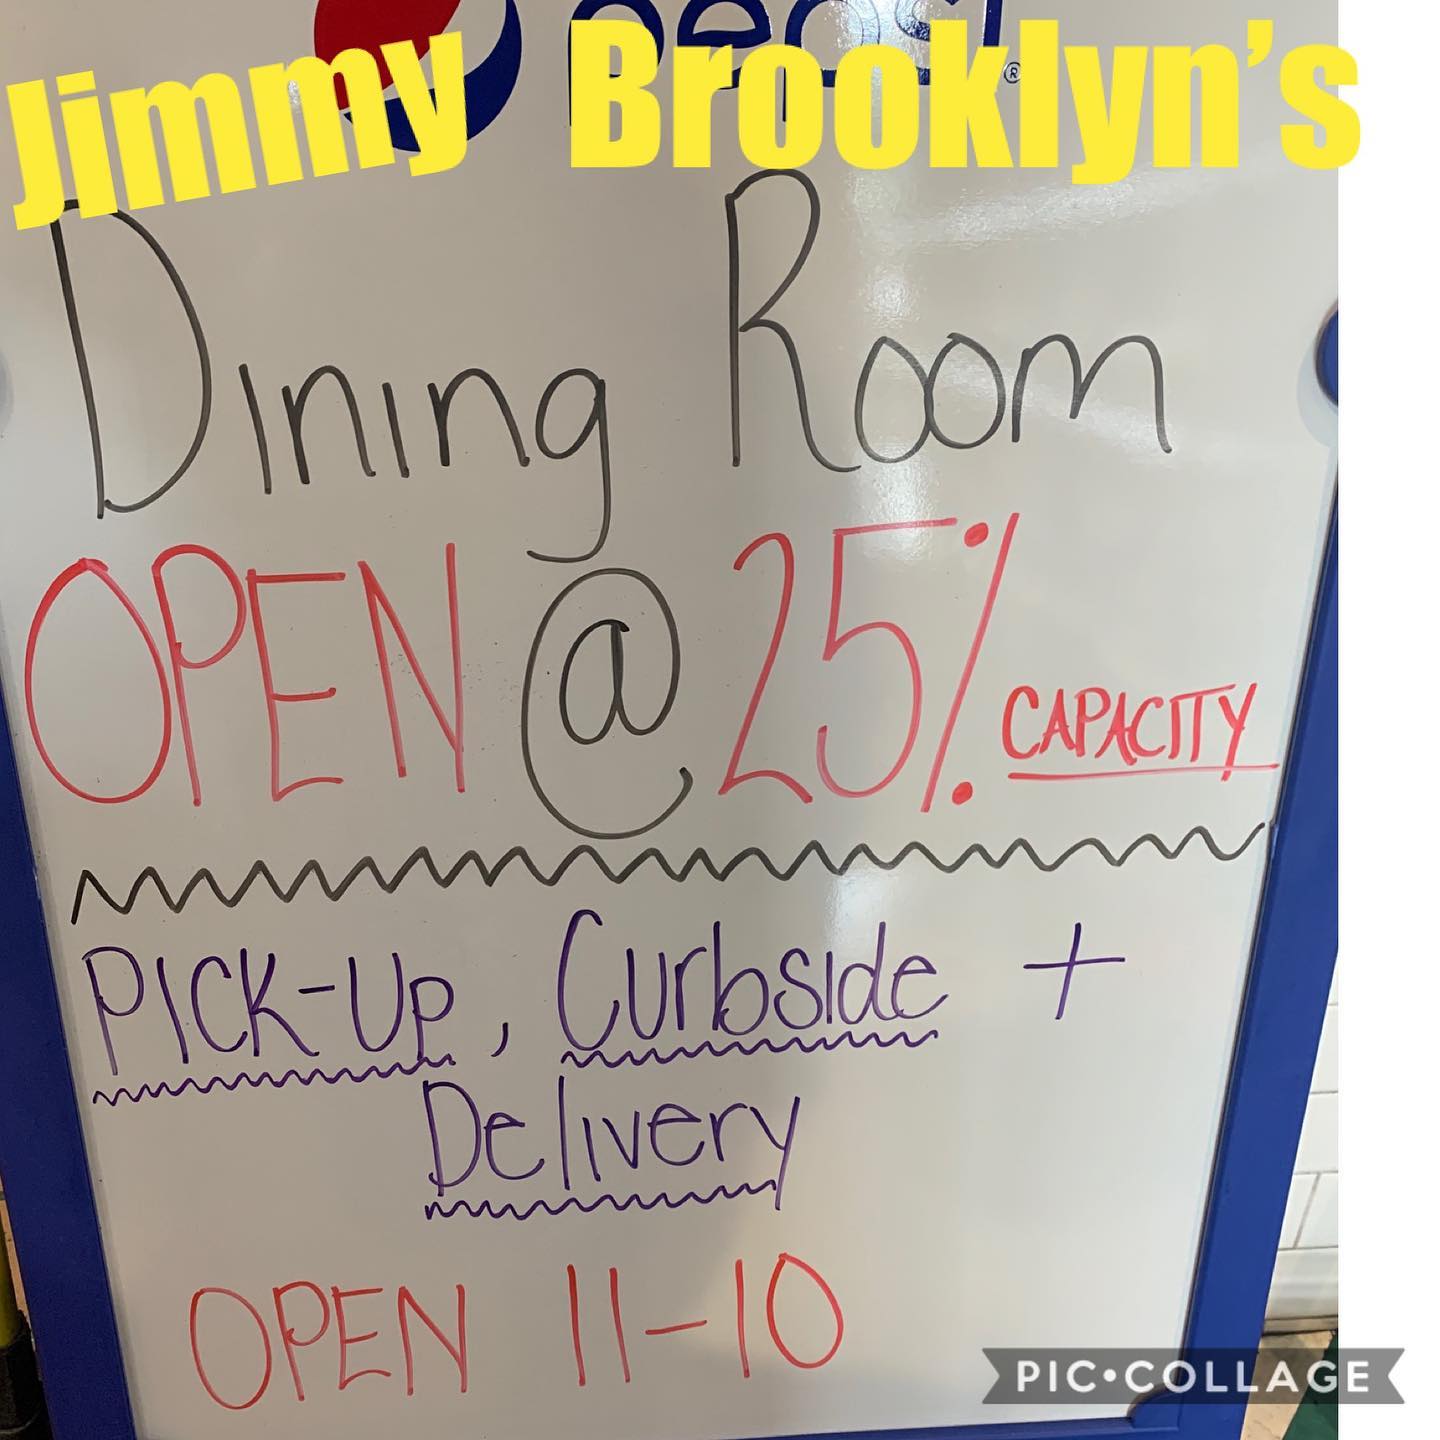 pepsi®
Jimmy Brooklyn's
Dining Room
OPEN @ 25% CAPACITY
PICK-UP, Curbside +
Delivery
OPEN 11-10
PIC•COLLAGE